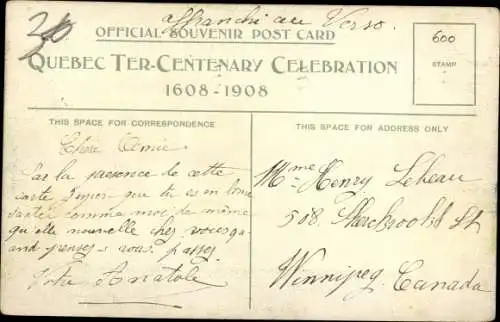 affranchi au Verso.
OFFICIAL SOUVENIR POST CARD
QUEBEC TER-CENTENARY CELEBRATION
1608-1908
600
STAMP
THIS SPACE FOR CORRESPONDENCE
Chère Amie
Par la présence de cette
carte que tu es en bonne
santé comme moi de même
qu'elle nouvelle chez vous
and penses vous passer
Votre Anatole
THIS SPACE FOR ADDRESS ONLY
Mme Henry Lebeau
508. Sherbrooke St
Winnipeg. Canada